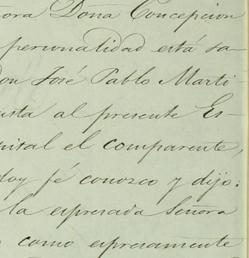 ora Dona Concepcion
personalidad está sa-
on José Pablo Marti-
usta al presente Es-
pital el comparente,
doy fé conozco y dijo:
la espresada Señora
como espresamente